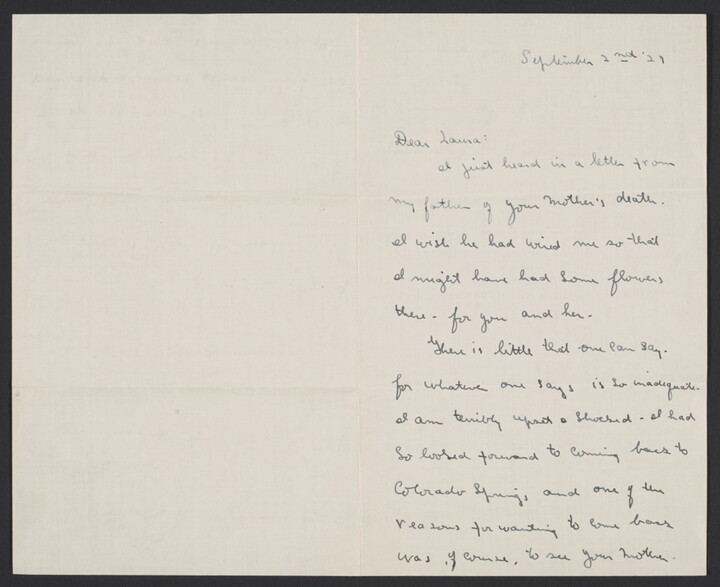 September 2nd '29
Dear Laura:
I just heard in a letter from
my father of your mother's death.
I wish he had wired me so that
I might have had some flowers
there - for you and her -
There is little that one can say -
for whatever one says is so inadequate -
I am terribly upset & shocked - I had
so looked forward to coming back to
Colorado Springs and one of the
reasons for wanting to come back
was, of course, to see your mother.